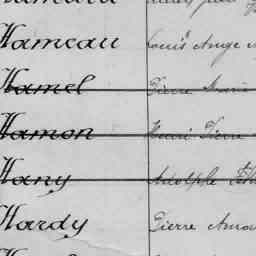 Hameau Louis Ange
Hamel Pierre Marie
Hamon Henri Pierre
Hany Adolphe
Hardy Pierre